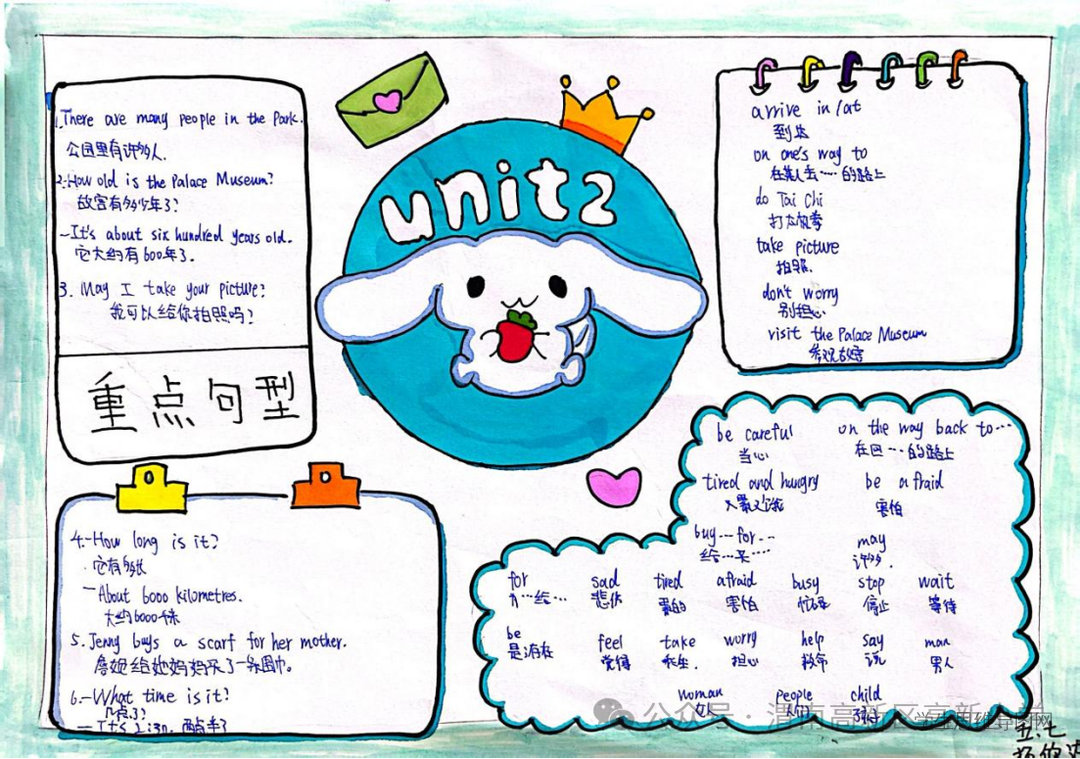 unit2
1. There are many people in the Park.
公园里有许多人.
2.-How old is the Palace Museum?
故宫有多少年了?
-It's about six hundred years old.
它大约有600年了.
3. May I take your picture?
我可以给你拍照吗?
重点句型
4.-How long is it?
它有多长
-About 6000 kilometres.
大约6000千米
5. Jenny buys a scarf for her mother.
詹妮给她妈妈买了一条围巾。
6.-What time is it?
几点了?
-It's 2:30. 两点半了
arrive in/at
到达
on one's way to
在某人去……的路上
do Tai Chi
打太极拳
take picture
拍照.
don't worry
别担心
visit the Palace Museum
参观故宫
be careful on the way back to…
当心 在回…的路上
tired and hungry be afraid
又累又饿 害怕
buy…for… may
给…买… 许多.
for sad tired afraid busy stop wait
给… 悲伤 累的 害怕 忙碌 停止 等待
be feel take worry help say man
是 觉得 担心 救命 说 男人
woman people child
女人 人们 孩子
公众号·渭南高新区高新
五.七